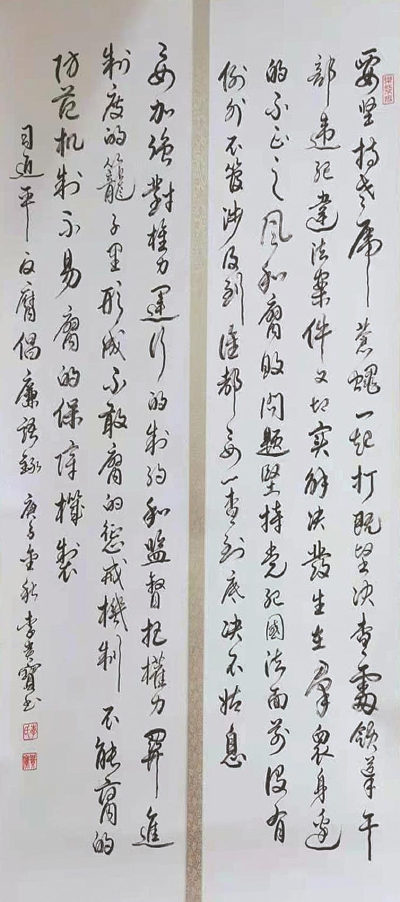 要坚持老虎苍蝇一起打既坚决查處领導干
部違纪違法案件又切实解决發生在羣衆身邊
的不正之风和腐败问题坚持党纪國法面前没有
例外不管涉及到谁都要一查到底决不姑息
要加强對权力運行的制约和监督把權力關進
制度的籠子里形成不敢腐的惩戒機制不能腐的
防范机制不易腐的保障機製
习近平反腐倡廉語録 庚子金秋 李贵寶书